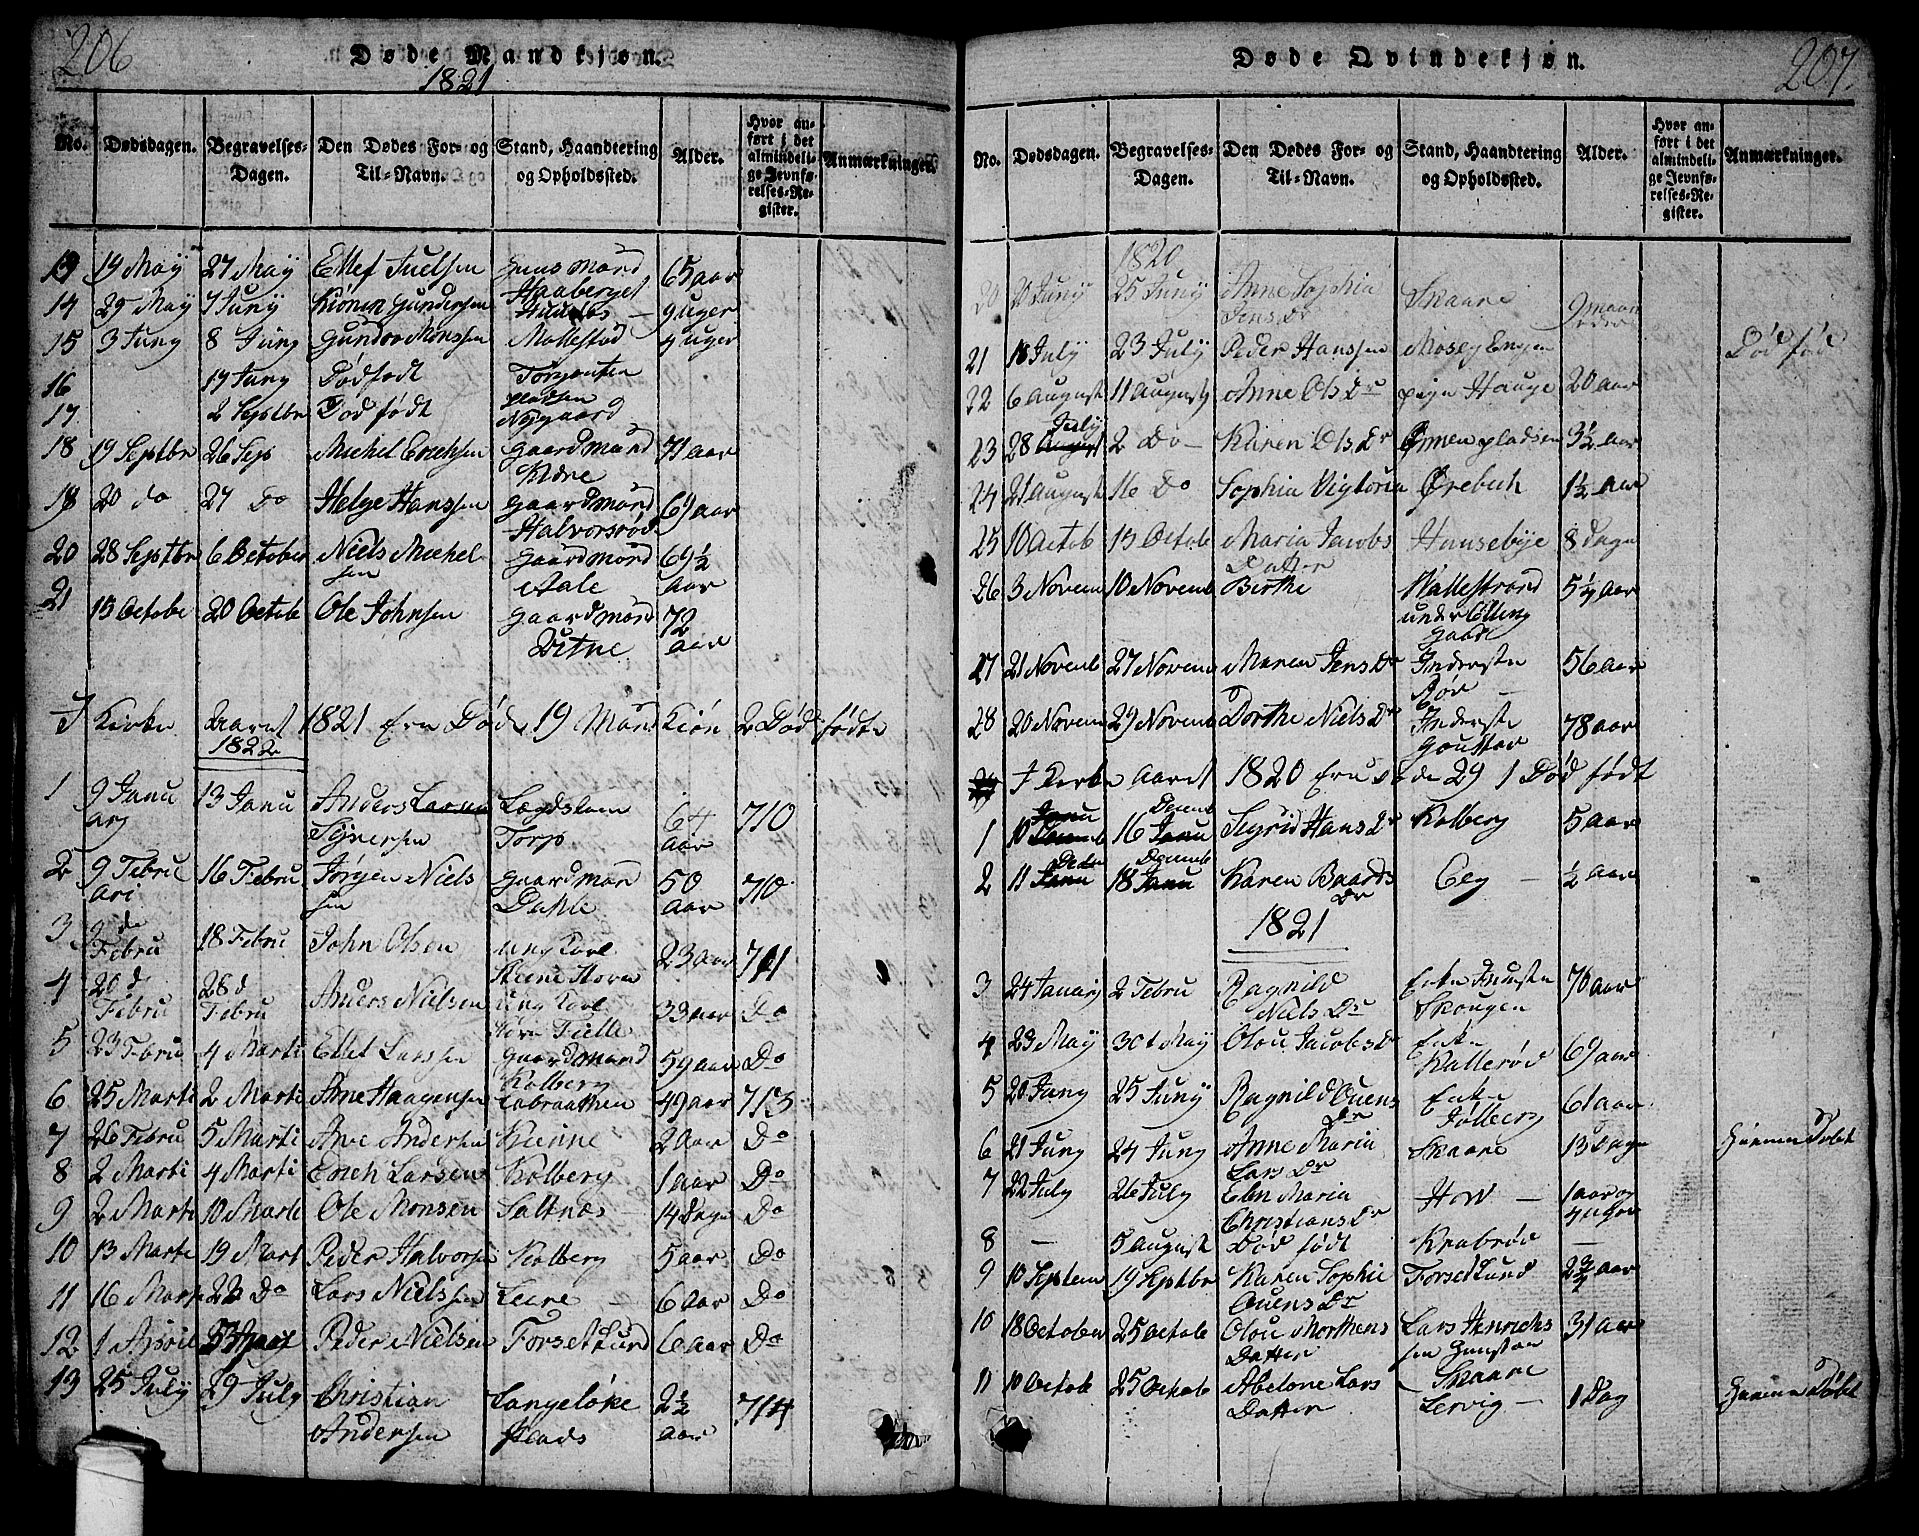 206
Døde Mandkjøn.
1821
No. Dødsdagen. Begravelses-Dagen. Den Dødes For- og Til-Navn. Stand, Haandtering og Opholdssted. Alder. Hvor anført i det almindelige Jevnførelses-Register. Anmærkninger.
13 14 May 27 May Ellef Juelsen Huusmand Haaberget 65 aar
14 29 May 7 Juny Gundersen 9 uger
15 3 Juny 8 Juny Gunder Monssen Mallestad 4 uger
16 17 Juny Dødfødt
17 2 Septbr Død født Nygaard
18 19 Septbr 26 Sep Michel Erichsen Gaardmand Kiærne 71 aar
19 20 do 27 Do Helge Hanssen Gaardmand Halvorsrød 69 aar
20 28 Septbr 6 October Niels Michelsen Gaardmand Aale 69½ aar
21 15 Octobr 20 Octob Ole Johnsen Gaardmand Vitne 72 aar
I Kirke Aaret 1821 Ere Døde 19 Mand Kiøn 2 Død fødte
1822
1 9 Januarj 13 Janu Anders Syversen Lægdslem Torp 64 aar 710
2 9 Februari 16 Febru Jørgen Nielssen Gaardmand Dahle 50 aar 710
3 9 de Febru 18 Febru John Olsen ung Karl 23 aar 711
4 20 d Febru 28 d Febru Anders Nielsen ung Karl 33 aar Do
5 23 Febru 4 Marti Ellef Larssen Gaardmand Kolberg 59 aar Do
6 25 Marti 2 Marti Arne Haagensen Labraathen 49 aar 713
7 26 Febru 5 Marti Arve Andersen Kienne 2 aar Do
8 2 Marti 4 Marti Erich Larsen Kolberg 1 aar Do
9 2 Marti 10 Marti Ole Monsen Saltnes 14 Dage Do
10 13 Marti 19 Mart Peder Halvorsen Kolberg 5 aar Do
11 16 Marti 22 Do Lars Nielssen Leere 6 aar Do
12 1 April Peder Nielsen Forsetlund 6 aar Do
13 25 July 29 July Christian Andersen Langeløke 2½ aar 714
207.
Døde Qvindekjøn.
No. Dødsdagen. Begravelses-Dagen. Den Dødes For- og Til-Navn. Stand, Haandtering og Opholdssted. Alder. Hvor anført i det almindelige Jevnførelses-Register. Anmærkninger.
1820
20 Juny 25 Juny Anne Sophia Jens Dr Skaare 9 maaneder
21 18 July 23 July Peder Hanssen Mosey Engen Død fød
22 6 August 11 August Anne Ols Dr pige Hauge 20 aar
23 28 July 2 Do Karen Ols Dr pladsen 3½ aar
24 21 August 16 Do Sophia Vigtoria Ørebech 1½ aar
25 10 Octob 15 Octob Maria Jacobs Datter Huusebye 8 Dage
26 3 Novem 10 Novemb Birthe Wallestrand under Elling gaard 5¼ aar
27 21 Novemb 27 Novem Maren Jens Dr Inderste Rød 56 aar
28 20 Novem 29 Novem Dorthe Niels Dr Inderste 78 aar
I Kirke Aaret 1820 Ere Døde 29 1 Død født
1 10 Janu 16 Decemb Sigrid Hans Dr Kolberg 5 aar
2 11 Decbr 18 Decemb Karen Baards Dr Eeg ½ aar
1821
3 24 Januarj 2 Febru Ragnild Niels Dr Enke Inderste Skougen 70 aar
4 23 May 30t May Olou Jacobs Dr Enke Kallerød 69 aar
5 20 Juny 25 Juny Ragnild Ouens Dr Enke Jølberg 61 aar
6 21 Juny 24 Juny Anne Maria Lars Dr Skaare 13 Dage Hiemme Døbt
7 22 July 26 July Elen Maria Christians Dr How 1 aar og 4 uger
8 — 5 August Død født Krabrød —
9 10 Septem 19 Septbr Karen Sophie Ouens Dr Forsetlund 2¾ aar
10 18 October 25 Octob Olou Morthens Datter Lars Henrichssen Skaare 31 aar
11 10 Octob 25 Octob Abelone Lars Datter Lervig 1 Dag Hiemme Døbt